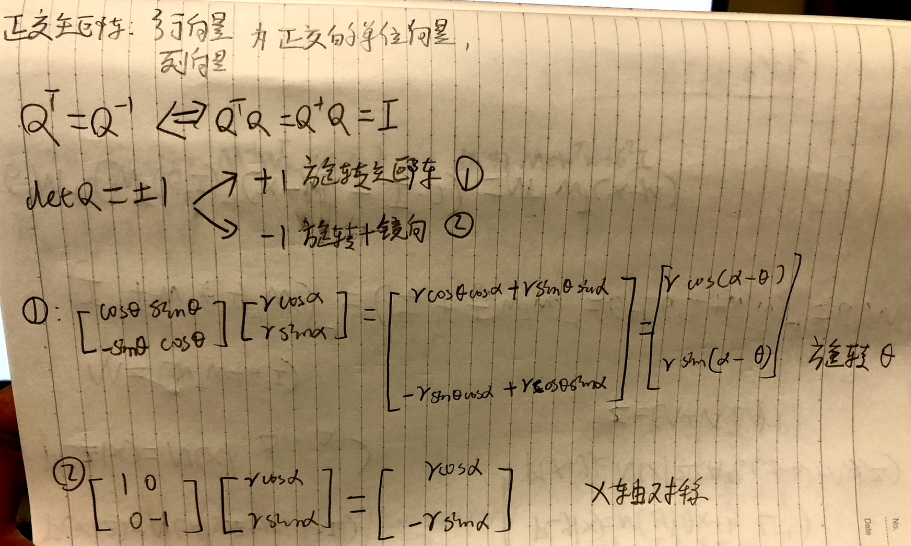 正交矩阵: 行向量 为正交的单位向量,
列向量
Qᵀ = Q⁻¹ ⟺ QᵀQ = Q⁻¹Q = I
det Q = ±1
+1 旋转矩阵 ①
-1 旋转+镜向 ②
①: [cosθ sinθ; -sinθ cosθ] [rcosα; rsinα] = [rcosθcosα + rsinθsinα; -rsinθcosα + rcosθsinα] = [r cos(α-θ); r sin(α-θ)] 旋转 θ
② [1 0; 0 -1] [rcosα; rsinα] = [rcosα; -rsinα] X轴对称
No.
Date